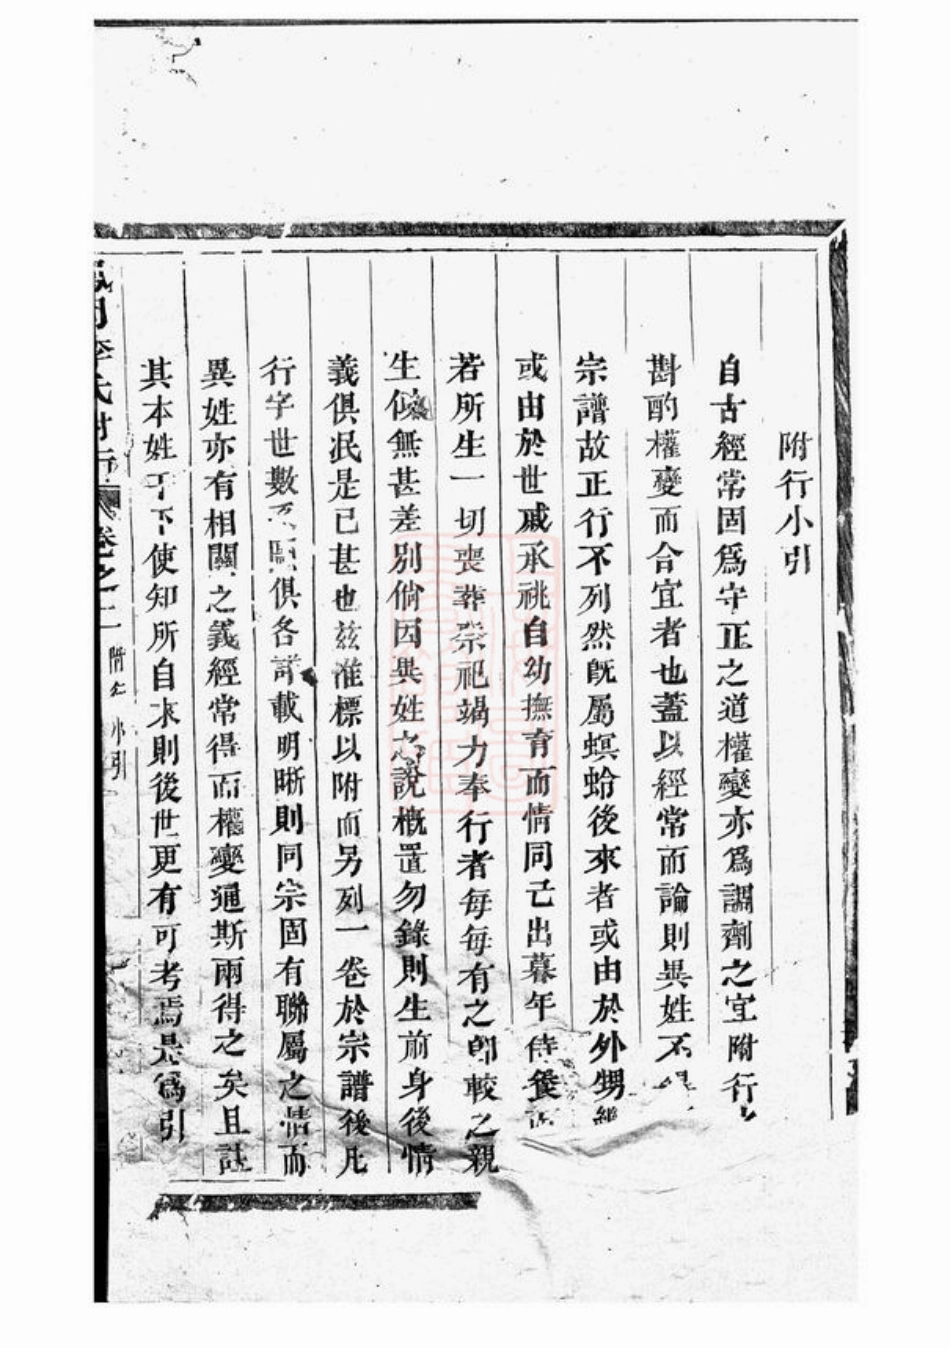 附行小引
自古經常固爲守正之道權變亦爲調劑之宜附行
斟酌權變而合宜者也蓋以經常而論則異姓不
宗譜故正行不列然旣屬螟蛉後來者或由於外甥
或由於世戚承祧自幼撫育而情同己出暮年侍養
若所生一切喪葬祭祀竭力奉行者每每有之卽較之親
生似無甚差別倘因異姓之說槪置勿錄則生前身後情
義俱泯是已甚也茲准標以附而另列一卷於宗譜後凡
行字世數俱各詳載明晰則同宗固有聯屬之情而
異姓亦有相關之義經常得而權變通斯兩得之矣且註
其本姓于下使知所自來則後世更有可考焉是爲引
李氏附行 卷之二 小引